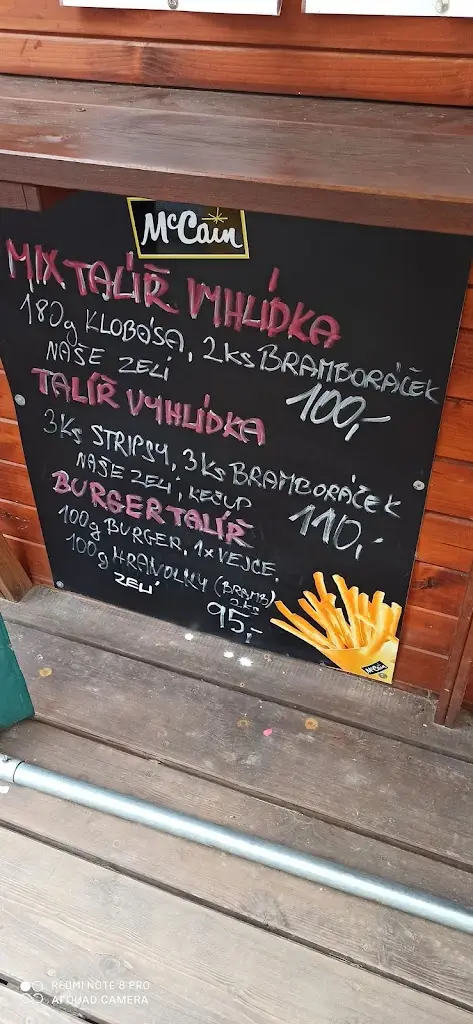 McCain
MIX TALÍŘ VYHLÍDKA
180g KLOBÁSA, 2ks BRAMBORÁČEK
NAŠE ZELÍ
100,-
TALÍŘ VYHLÍDKA
3Ks STRIPSY, 3Ks BRAMBORÁČEK
NAŠE ZELÍ, KEČUP
110,-
BURGER TALÍŘ
100g BURGER, 1x VEJCE,
100g HRANOLKY (BRAMB)
2ks
ZELÍ
95,-
McCain
REDMI NOTE 8 PRO
AI QUAD CAMERA